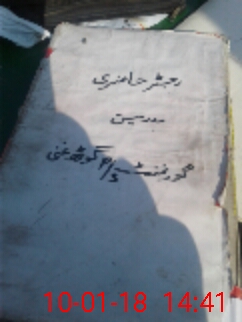 رجسٹر حاضری
مدرسین
گورنمنٹ
10-01-18 14:41